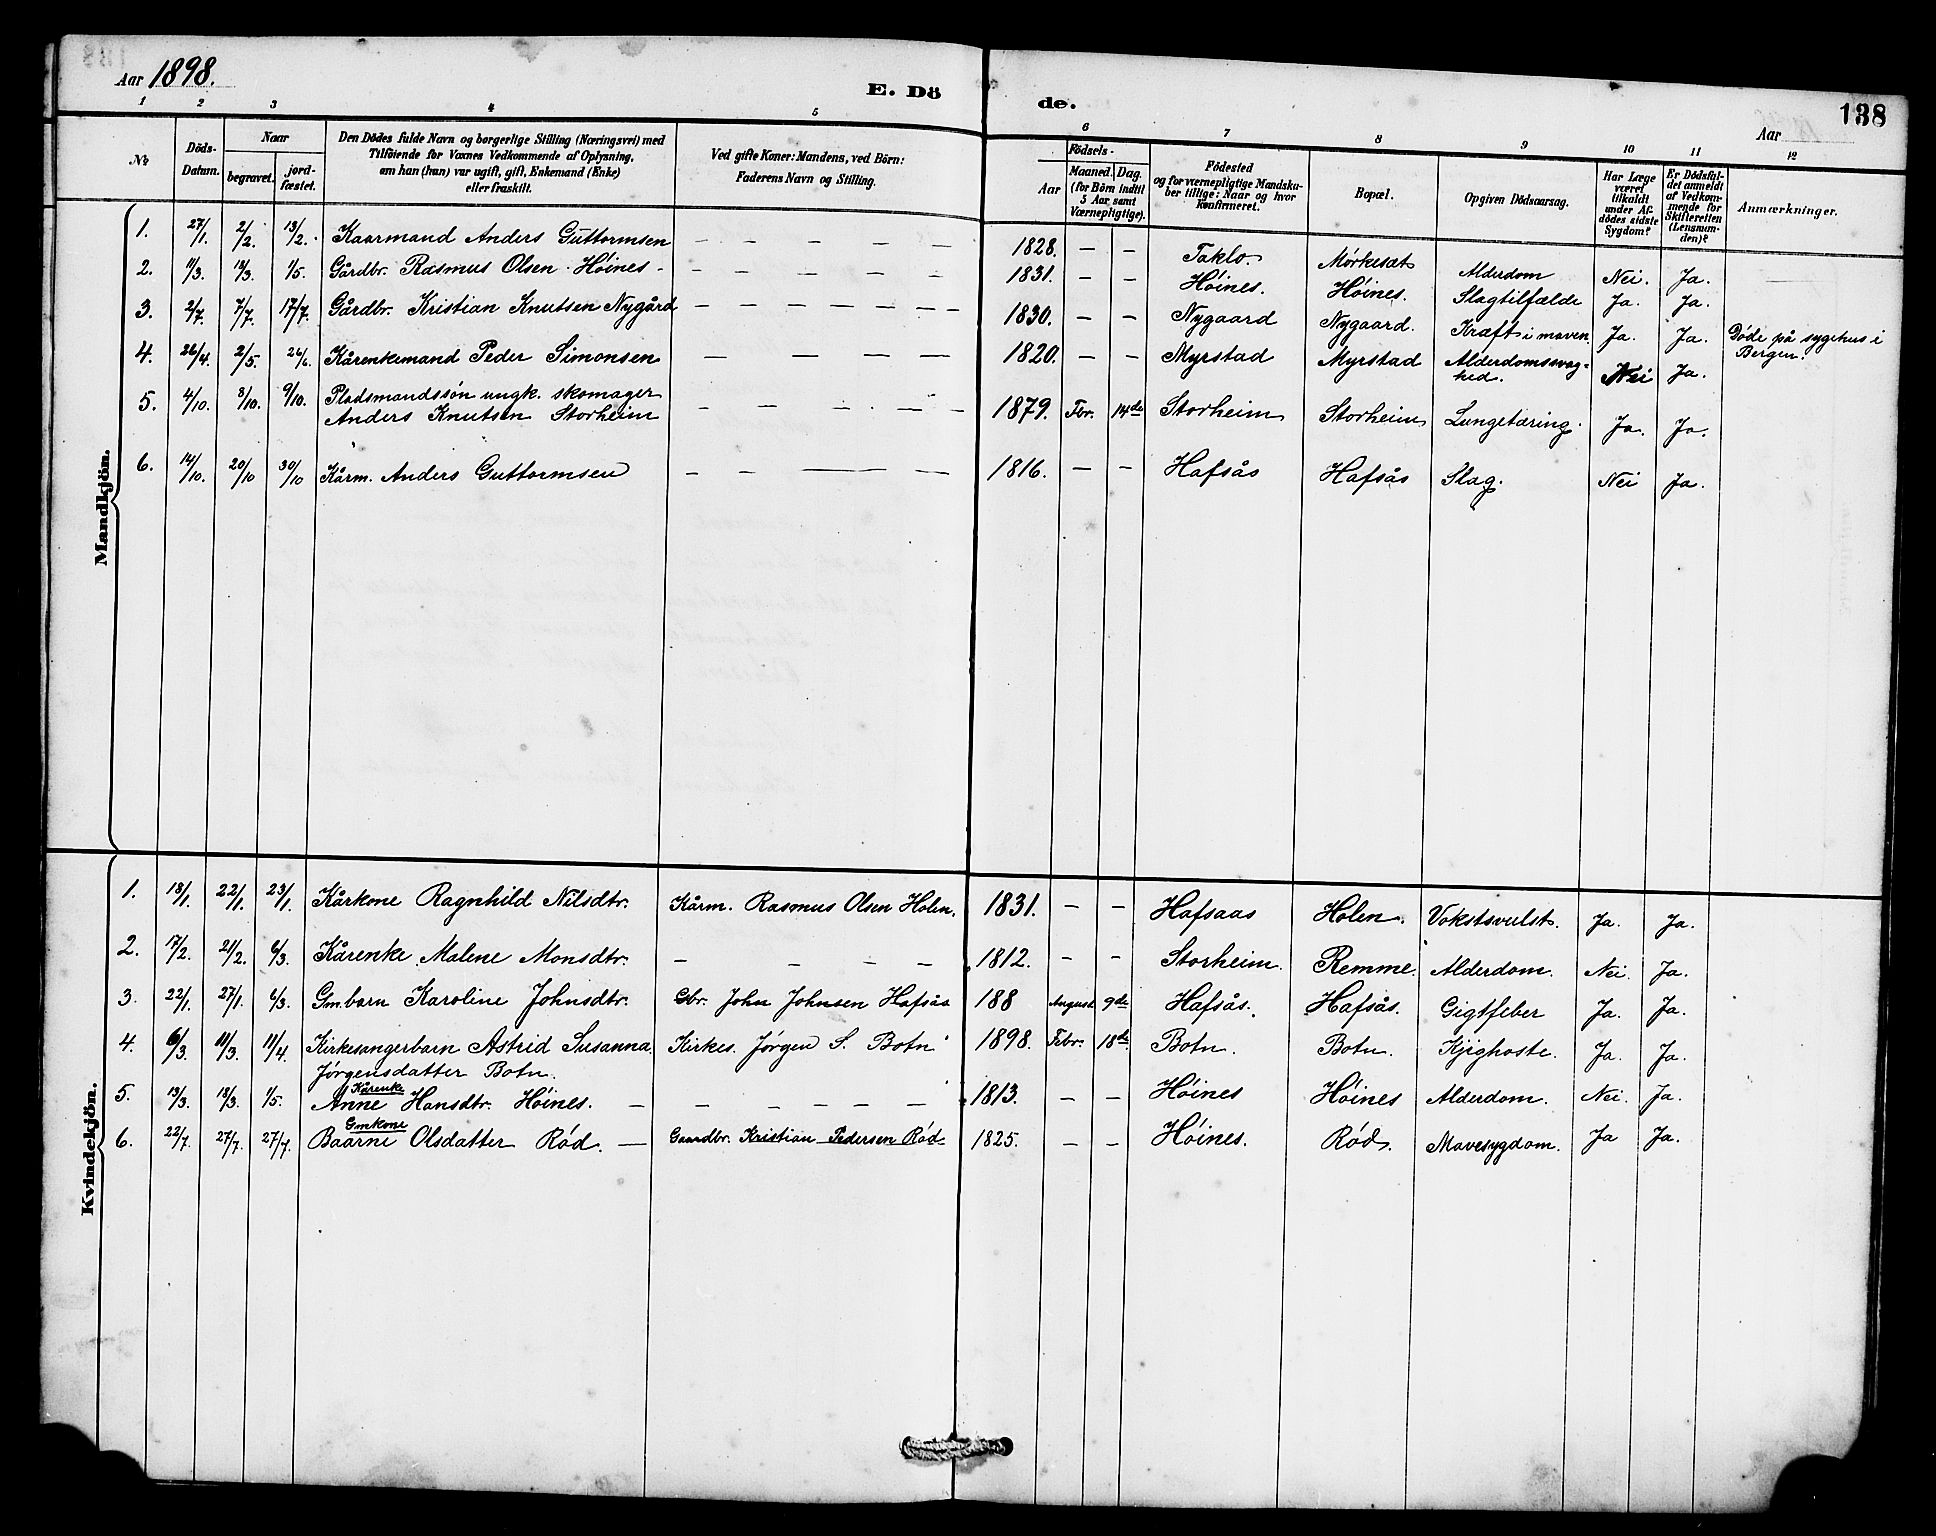 Aar 1898. E. Dö de. Aar 138
1 2 3 4 5 6 7 8 9 10 11 12
No Döds-Datum. Naar begravet. jord-fæstet. Den Dödes fulde Navn og borgerlige Stilling (Næringsvei) med Tilföiende for Voxnes Vedkommende af Oplysning, om han (hun) var ugift, gift, Enkemand (Enke) eller fraskilt. Ved gifte Koner: Mandens, ved Börn: Faderens Navn og Stilling. Födsels- Aar Maaned. Dag. (for Börn indtil 5 Aar samt Værnepligtige). Födested og for værnepligtige Mandskaber tillige: Naar og hvor Konfirmeret. Bopæl. Opgiven Dödsaarsag. Har Læge været tilkaldt under Afdödes sidste Sygdom? Er Dödsfaldet anmeldt af Vedkommende for Skifteretten (Lensmanden)? Anmærkninger.
Mandkjön.
1. 27/1. 2/2. 13/2. Kaarmand Anders Guttormsen — — — — — 1828. — — Taklo. Mørkesæt Alderdom Nei. Ja.
2. 11/3. 18/3. 1/5. Gårdbr. Rasmus Olsen Høines — — — — — 1831. — — Høines. Høines. Slagtilfælde Ja. Ja.
3. 2/7. 7/7. 17/7. Gårdbr. Kristian Knutsen Nygård — — — — — — 1830. — — Nygaard Nygaard. Kræft i maven Ja. Ja. Døde på sygehus i
Bergen.
4. 26/4. 2/5. 26/6. Kårenkemand Peder Simonsen — — — — — 1820. — — Myrstad Myrstad Alderdomssvag-
hed. Nei Ja.
5. 4/10. 8/10. 9/10. Pladsmandssøn ungk. skomager
Anders Knutsen Storheim — — — — — 1879. Fbr. 14de Storheim Storheim Lungetæring. Ja. Ja.
6. 14/10. 20/10 30/10 Kårm. Anders Guttormsen — — — — — 1816. — — Hafsås Hafsås Slag. Nei Ja.
Kvindekjön.
1. 18/1. 22/1. 23/1. Kårkone Ragnhild Nilsdtr. Kårm. Rasmus Olsen Holen. 1831. — — Hafsaas Holen. Vokstsvulst. Ja. Ja.
2. 17/2. 21/2. 6/3. Kårenke Malene Monsdtr. — — — — 1812. — — Storheim. Remme. Alderdom. Nei. Ja.
3. 22/1. 27/1. 6/3. Gm.barn Karoline Johnsdtr. Gbr. John Johnsen Hafsås 188 August 9de Hafsås. Hafsås. Gigtfeber Ja. Ja.
4. 6/3. 11/3. 11/4. Kirkesangerbarn Astrid Susanna Kirkes. Jørgen S. Botn 1898. Febr. 18de Botn. Botn. Kjighoste. Ja. Ja.
Jørgensdatter Botn.
Kårenke
5. 13/3. 18/3. 1/5. Anne Hansdtr. Høines. — — — — — — 1813. — — Høines Høines Alderdom. Nei. Ja.
Gmkone
6. 22/7. 27/7. 27/7. Baarni Olsdatter Rød. — Gaardbr. Kristian Pedersen Rød 1825. — — Høines. Rød. Mavesygdom. Ja Ja.